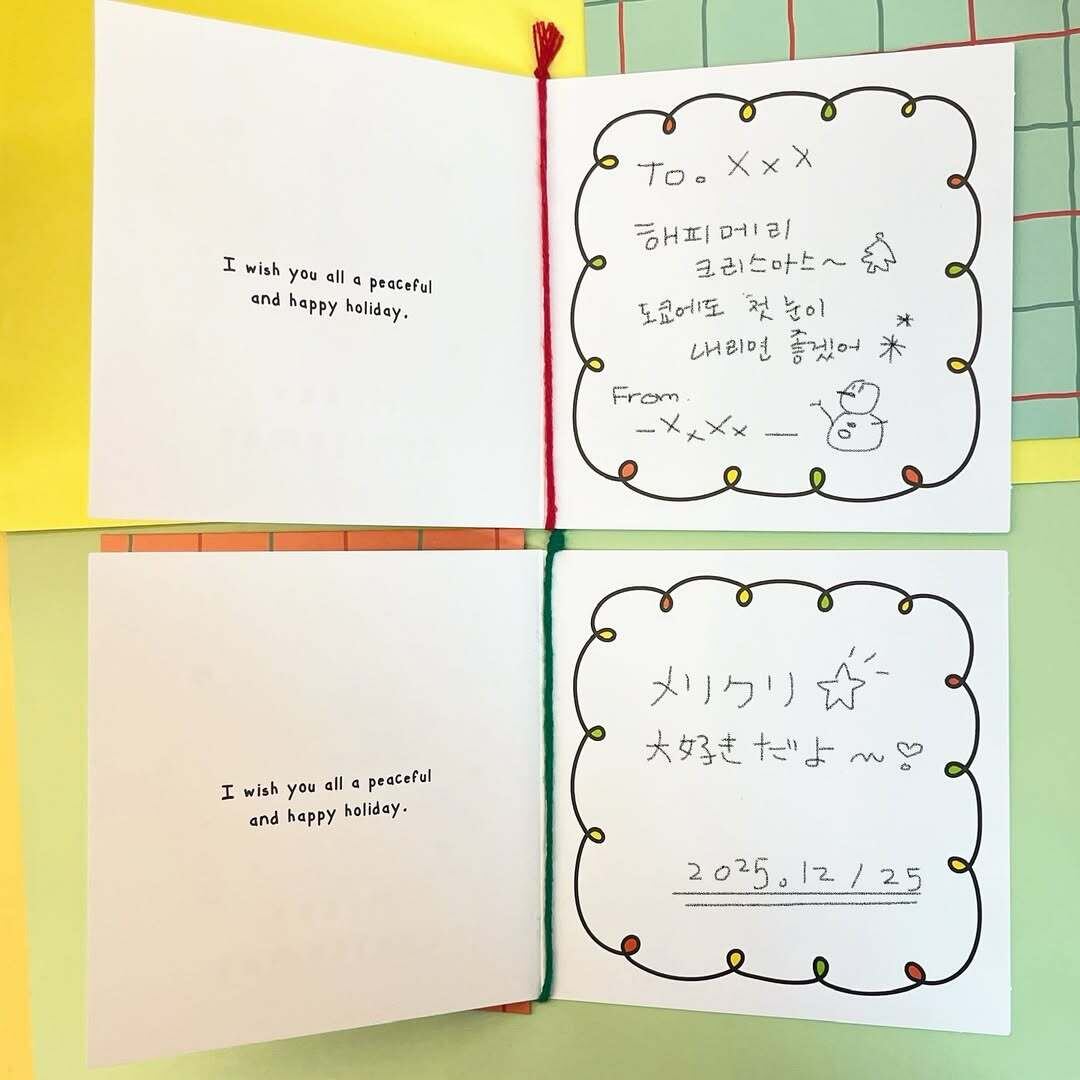 I wish you all a peaceful
and happy holiday.
To. X x X
해피메리
크리스마스~
도쿄에도 첫 눈이
내리면 좋겠어
From.
-XxXx —
I wish you all a peaceful
and happy holiday.
メリクリ☆
大好きだよ〜♡
2025.12/25